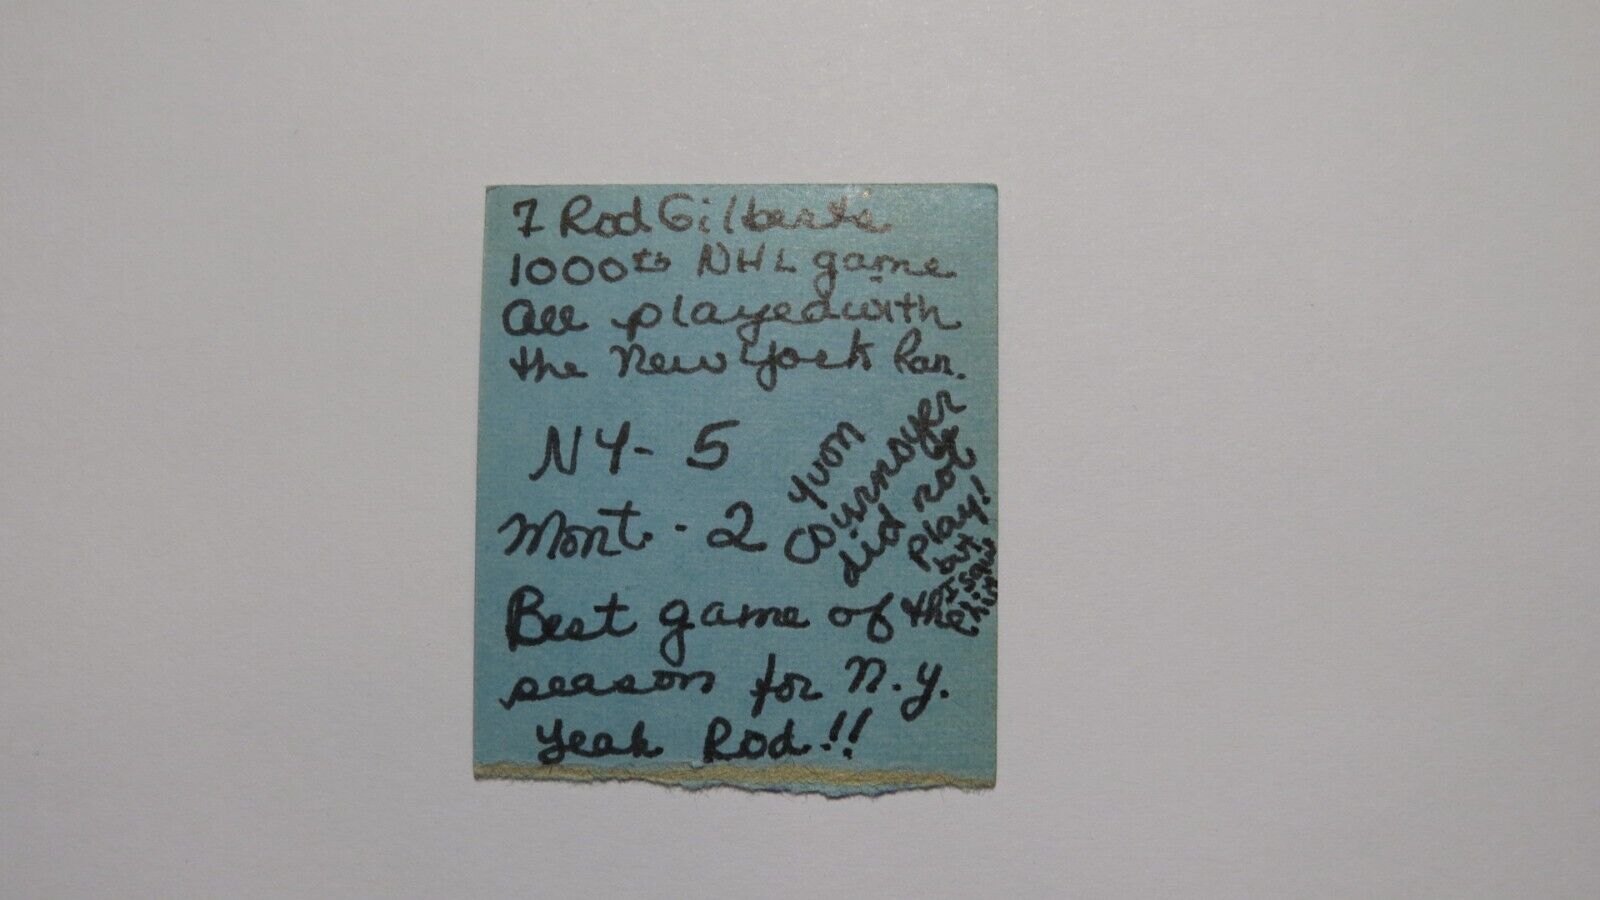 7 Rod Gilbert's
1000th NHL game
All played with
the New York Ran.
NY- 5
Mont - 2
Yvon
Cournoyer
did not
play!
but
I saw
him
Best game of the
season for N.Y.
Yeah Rod!!